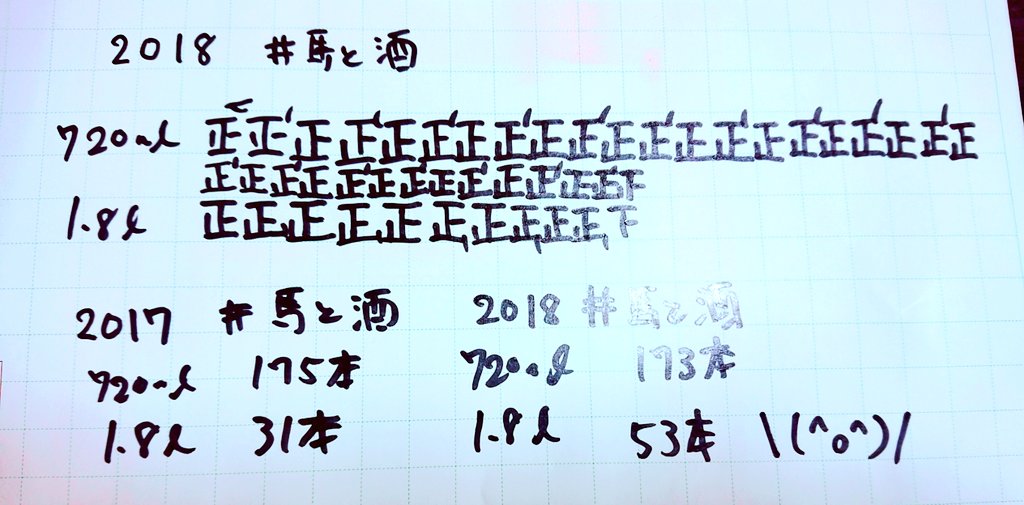 2018 #馬と酒
720ml 正正正正正正正正正正正正正正正正正正正正正
正正正正正正正正正正正正正下
1.8l 正正正正正正正正正正下
2017 #馬と酒 2018 #馬と酒
720ml 175本 720ml 173本
1.8l 31本 1.8l 53本 \(^o^)/